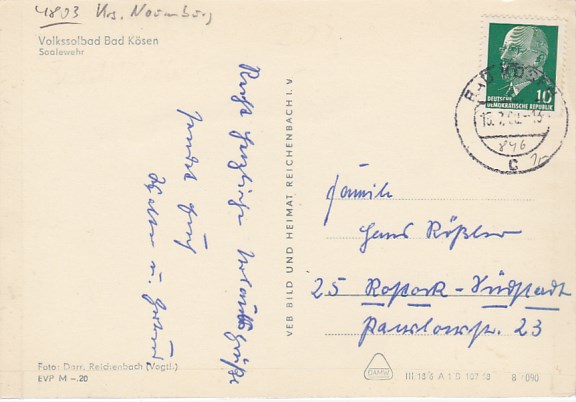 4803 Krs. Naumburg
Volkssolbad Bad Kösen
Saalewehr
Recht herzliche Urlaubsgrüße
sendet Euch
u.
Foto: Darr, Reichenbach (Vogtl.)
EVP M –.20
VEB BILD UND HEIMAT REICHENBACH I. V
10
DEUTSCHE
DEMOKRATISCHE REPUBLIK
BAD KÖSEN
846
c
Familie
Hans Rößler
25 Rostock-Südstadt
Pawlowstr. 23
DAWW
8 090